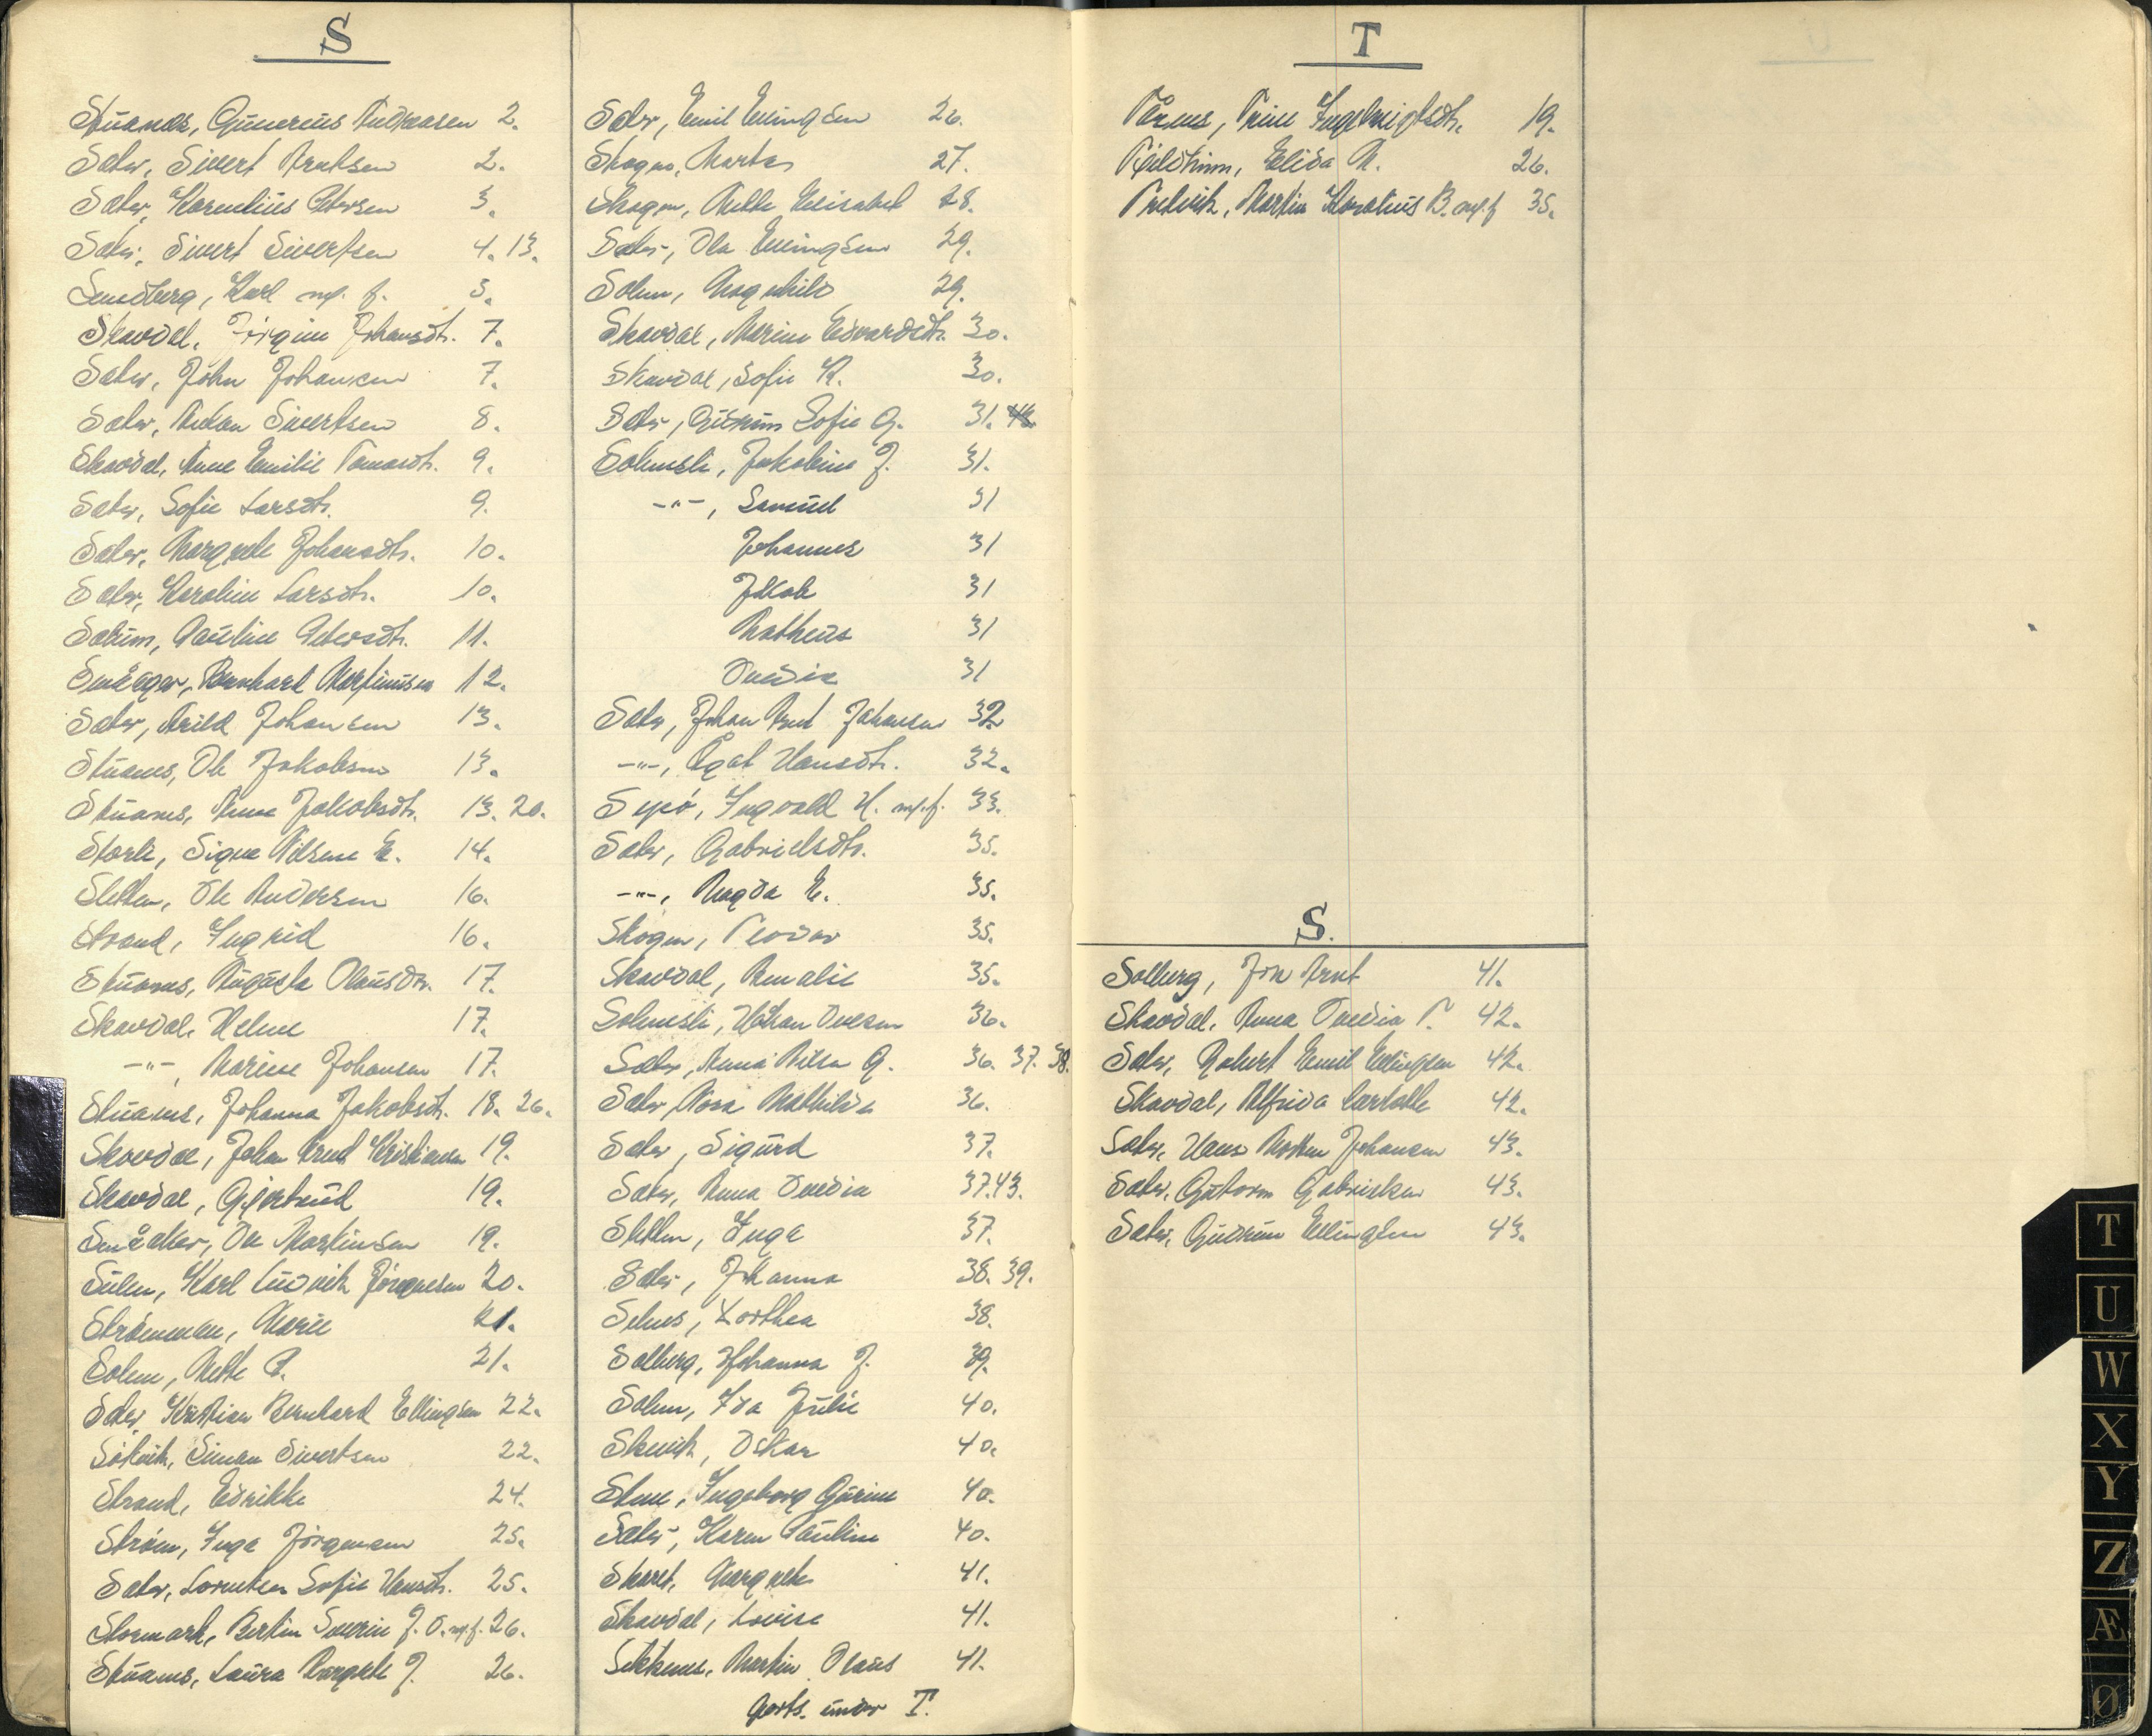 S
Stuanes, Gunerius Andreasen 2.
Sæter, Sivert Arntsen 2.
Sæter, Kornelius Petersen 3.
Sæter, Sivert Sivertsen 4. 13.
Sundberg, Karl m. f. 5.
Skavdal, Jørgine Johansdtr. 7.
Sæter, John Johansen 7.
Sæter, Anton Sivertsen 8.
Skavdal, Anne Emilie Tomasdtr. 9.
Sæter, Sofie Larsdtr. 9.
Sæter, Margrete Johansdtr. 10.
Sæter, Karoline Larsdtr. 10.
Solum, Pauline Petersdtr. 11.
Småager, Bernhard Martinusen 12.
Sæter, Arild Johansen 13.
Stuanes, Ole Jakobsen 13.
Stuanes, Anne Jakobsdtr. 13. 20.
Storli, Signe Nilsine E. 14.
Sletten, Ole Andersen 16.
Strand, Ingrid 16.
Stuanes, Augusta Olausdtr. 17.
Skavdal, Helene 17.
-"-, Marius Johansen 17.
Stuanes, Johanna Jakobsdtr. 18. 26.
Skavdal, Johan Arnt Kristiansen 19.
Skavdal, Gjertrud 19.
Småaker, Ole Martinsen 19.
Sulen, Karl Ludvik Jørgensen 20.
Strømman, Marie 21.
Solem, Mette P. 21.
Sæter, Kristian Bernhard Ellingsen 22.
Søkvik, Simon Sivertsen 22.
Strand, Edrikke 24.
Strøm, Inga Jørgensen 25.
Sæter, Lorentse Sofie Hansdtr. 25.
Stormark, Bertin Severin J. O. m.f. 26.
Stuanes, Laura Margrete J. 26.
Sæter, Emil Ellingsen 26.
Skogen, Marta 27.
Skogen, Mette Elisabet 28.
Sæter, Ole Ellingsen 29.
Solem, Magnhild 29.
Skavdal, Marine Edvardsdtr. 30.
Skavdal, Sofie K. 30.
Sæter, Gudrun Sofie G. 31.
Solemsli, Jakobine J. 31.
-"-, Samuel 31
Johannes 31
Jakob 31
Matheus 31
Ovedia 31
Sæter, Johan Arnt Johansen 32
-"-, Ågot Hansdtr. 32.
Sysø, Ingvald H. m.f. 33.
Sæter, Gabrielsdtr. 35.
-"-, Magda E. 35.
Skogen, Peodor 35.
Skavdal, Amalie 35.
Solemsli, Håkon Ovesen 36.
Sæter, Anna Nilsa G. 36. 37. 38.
Sæter, Nora Mathilde 36.
Sæter, Sigurd 37.
Sæter, Anna Ovedia 37. 43.
Sletten, Inga 37.
Sæter, Johanna 38. 39.
Selnes, Dorthea 38.
Solberg, Johanna J. 39.
Solem, Ida Julie 40.
Skevik, Oskar 40.
Stene, Ingeborg Gurine 40.
Sæter, Karen Pauline 40.
Skaret, Margrete 41.
Skavdal, Lovise 41.
Setternes, Martin Olaus 41.
Forts. under T.
T
Tårnes, Trine Ingebrigtsdtr. 19.
Elida M. 26.
Martin Konelius B. m.f 35.
S.
Solberg, Jon Arnt 41.
Skavdal, Anna Ovedia T. 42.
Sæter, Robert Emil Ellingsen 42.
Skavdal, Alfrida Charlotte 42.
Sæter, Hans Morten Johansen 43.
Sæter, Guttorm Gabrielsen 43.
Sæter, Gudrun Ellingsen 43.
T
U
W
X
Y
Z
Æ
Ø